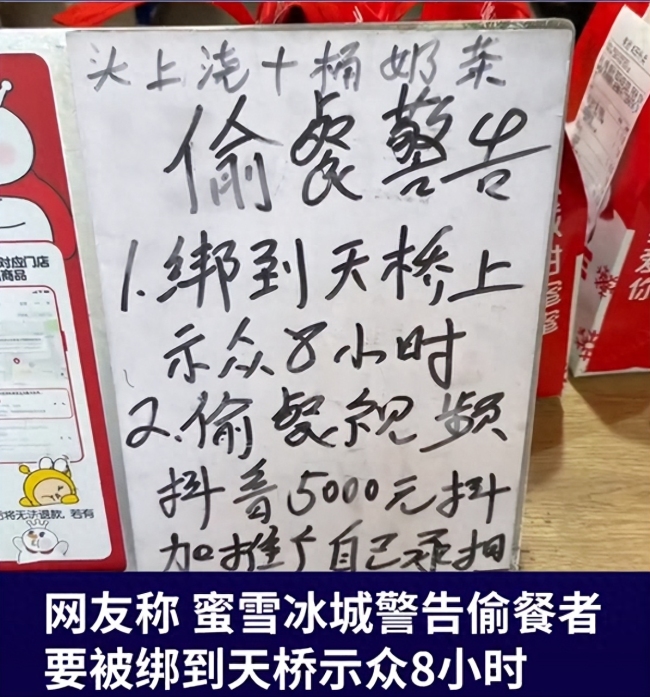 头上浇十桶奶茶
偷餐警告
1.绑到天桥上
示众8小时
2.偷餐视频
抖音5000元抖
加推广自己承担
对应门店
商品
将无法退款,若有
你
网友称 蜜雪冰城警告偷餐者
要被绑到天桥示众8小时